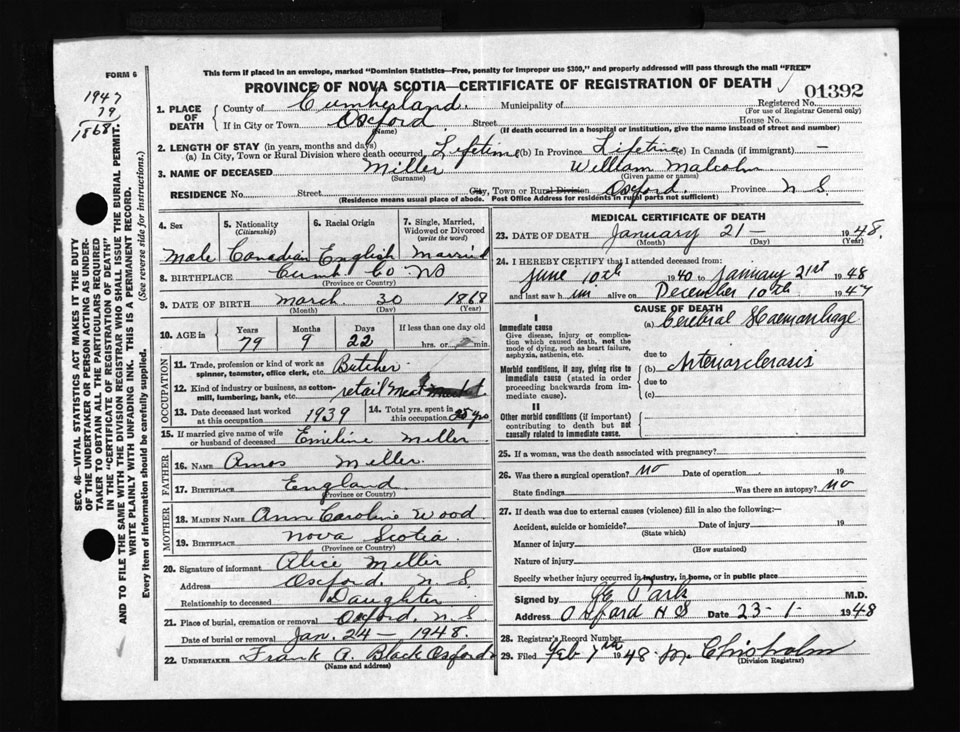 FORM 6
This form if placed in an envelope, marked "Dominion Statistics—Free, penalty for improper use $300," and properly addressed will pass through the mail "FREE"
PROVINCE OF NOVA SCOTIA—CERTIFICATE OF REGISTRATION OF DEATH
01392
1947
79
1868
1. PLACE OF DEATH
County of Cumberland. Municipality of Registered No.
(For use of Registrar General only)
If in City or Town Oxford Street House No.
(Name) (If death occurred in a hospital or institution, give the name instead of street and number)
2. LENGTH OF STAY (in years, months and days)
(a) In City, Town or Rural Division where death occurred Lifetime (b) In Province Lifetime (c) In Canada (if immigrant) —
3. NAME OF DECEASED Miller William Malcolm
(Surname) (Given name or names)
RESIDENCE No. Street City, Town or Rural Division Oxford. Province N S.
(Residence means usual place of abode. Post Office Address for residents in rural parts not sufficient)
4. Sex 5. Nationality (Citizenship) 6. Racial Origin 7. Single, Married, Widowed or Divorced (write the word)
Male Canadian English Married
8. BIRTHPLACE Cumb Co NS
(Province or Country)
9. DATE OF BIRTH March 30 1868
(Month) (Day) (Year)
10. AGE in Years Months Days If less than one day old
79 9 22 hrs. or min.
OCCUPATION
11. Trade, profession or kind of work as spinner, teamster, office clerk, etc. Butcher
12. Kind of industry or business, as cotton-mill, lumbering, bank, etc. retail Meat Market
13. Date deceased last worked at this occupation 1939 14. Total yrs. spent in this occupation yrs
15. If married give name of wife or husband of deceased Emeline Miller
FATHER
16. NAME Amos Miller.
17. BIRTHPLACE England
(Province or Country)
MOTHER
18. MAIDEN NAME Ann Caroline Wood
19. BIRTHPLACE Nova Scotia.
(Province or Country)
20. Signature of informant Alice Miller
Address Oxford, N. S.
Relationship to deceased Daughter
21. Place of burial, cremation or removal Oxford, N.S
Date of burial or removal Jan. 24 — 1948.
22. UNDERTAKER Frank A. Black Oxford
(Name and address)
MEDICAL CERTIFICATE OF DEATH
23. DATE OF DEATH January 21 — 1948.
(Month) (Day) (Year)
24. I HEREBY CERTIFY that I attended deceased from:
June 10th 1940 to January 21st 1948
and last saw him alive on December 10th 1947
CAUSE OF DEATH
I
Immediate cause
Give disease, injury or complication which caused death, not the mode of dying, such as heart failure, asphyxia, asthenia, etc.
(a) Cerebral Haemorrhage
due to
Morbid conditions, if any, giving rise to immediate cause (stated in order proceeding backwards from immediate cause).
(b) Arteriosclerosis
due to
(c)
II
Other morbid conditions (if important) contributing to death but not causally related to immediate cause.
25. If a woman, was the death associated with pregnancy?
26. Was there a surgical operation? No Date of operation 19
State findings Was there an autopsy? No
27. If death was due to external causes (violence) fill in also the following:—
Accident, suicide or homicide? Date of injury 19
(State which)
Manner of injury
(How sustained)
Nature of injury
Specify whether injury occurred in industry, in home, or in public place
Signed by Park M.D.
Address Oxford N S Date 23-1- 1948
28. Registrar's Record Number
29. Filed Feb 1948 Chisholm
(Division Registrar)
SEC. 46—VITAL STATISTICS ACT MAKES IT THE DUTY
OF THE UNDERTAKER OR PERSON ACTING AS UNDER-
TAKER TO OBTAIN ALL THE PARTICULARS REQUIRED
IN THE "CERTIFICATE OF REGISTRATION OF DEATH"
AND TO FILE THE SAME WITH THE DIVISION REGISTRAR WHO SHALL ISSUE THE BURIAL PERMIT.
WRITE PLAINLY WITH UNFADING INK. THIS IS A PERMANENT RECORD.
Every item of information should be carefully supplied. (See reverse side for instructions.)